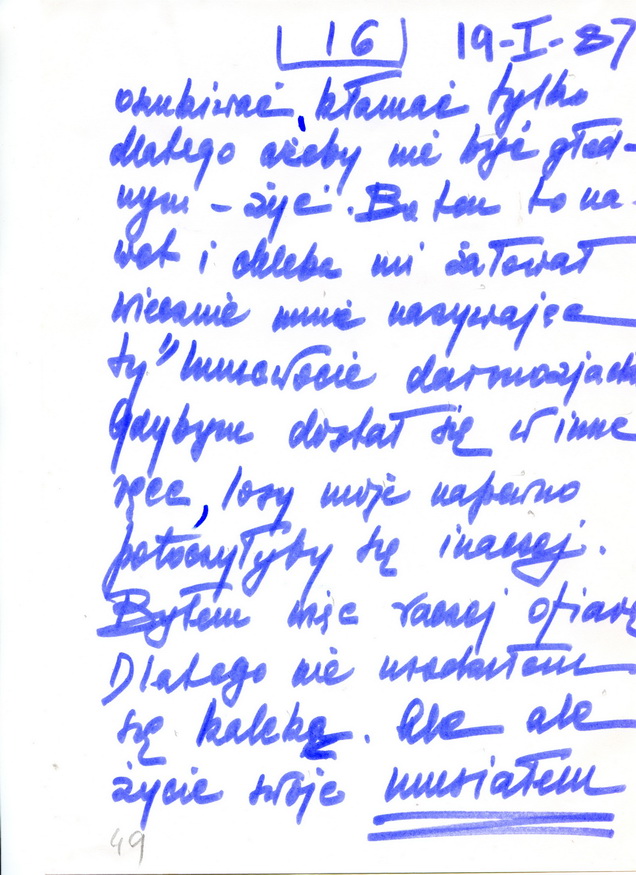 16 19-I-87
oszukiwać, kłamać tylko
dlatego ażeby nie być głod-
nym - żyć. Bo ten to na-
wet i chleba mi żałował
wiecznie mnie nazywając
ty" darmozjad
Gdybym dostał się w inne
ręce, losy moje napewno
potoczyłyby się inaczej.
Byłem więc raczej ofiarą
Dlatego nie urodziłem
się kaleką. Ale ale
życie swoje musiałem
49